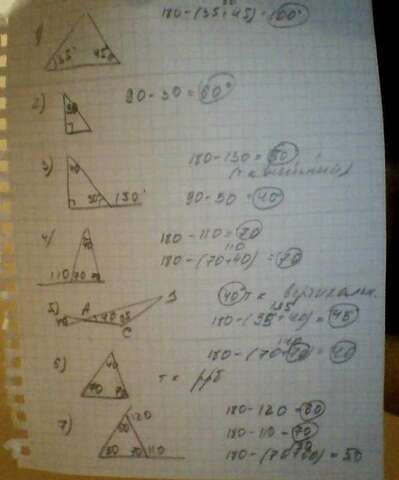 80
180-(35+45)=100°
1)
35° 45°
2)
30
90-30=60°
3)
40
50° 130°
180-130=50
(т.к внешний)
90-50=40
4)
40
110 70 70
180-110=70
110
180-(70+40)=70
5)
A B
40 40 95
C
40 т к вертикальн.
135
180-(95+40)=45
6)
40
70 70
т к р/б
140
180-(70+70)=40
7)
120
60
50 70 110
180-120=60
180-110=70
180-(70+60)=50